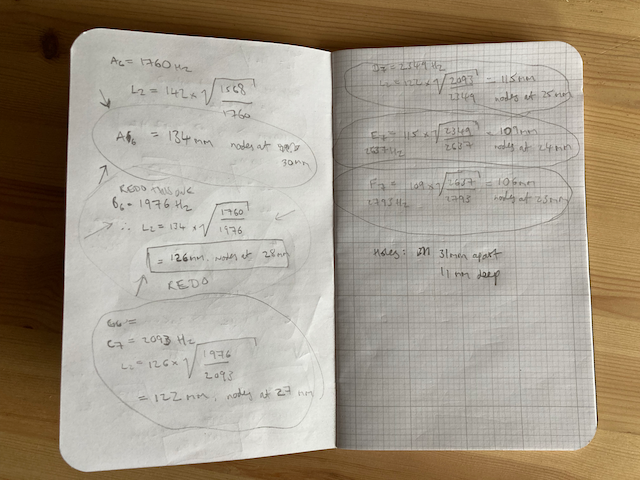 A6 = 1760 Hz
L2 = 142 × √1568/1760
A6 = 134 mm nodes at 30mm
REDO THIS ONE
B6 = 1976 Hz
∴ L2 = 134 × √1760/1976
= 126mm, nodes at 28mm
REDO
C7 = 2093 Hz
L2 = 126 × √1976/2093
= 122 mm, nodes at 27 mm
D7 = 2349 Hz
L2 = 122 × √2093/2349 = 115mm
nodes at 25mm
E7 = 115 × √2349/2637 = 109mm
2637Hz nodes at 24mm
F7 = 109 × √2637/2793 = 106mm
2793 Hz nodes at 23mm
Holes: 31mm apart
11 mm deep